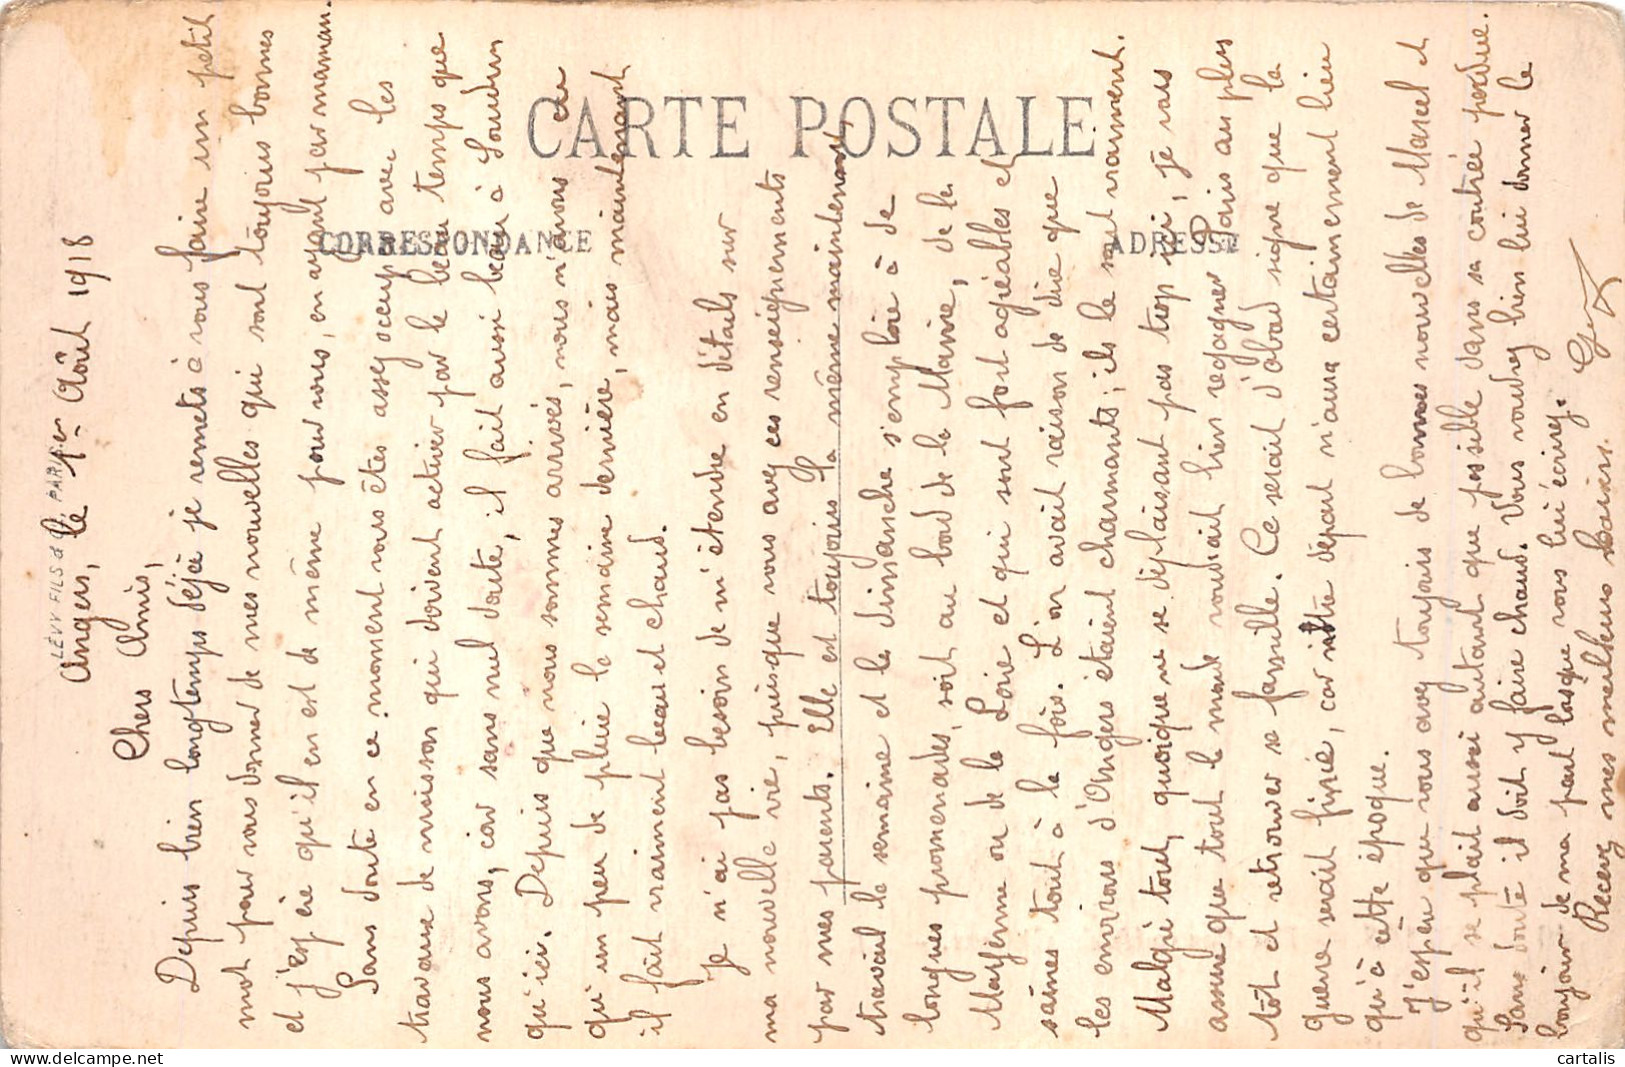 LÉVY FILS & Cie PARIS
CARTE POSTALE
CORRESPONDANCE
ADRESSE
Angers, le 1er Août 1918
Chers Amis,
Depuis bien longtemps déjà je remets à vous faire un petit
mot pour vous donner de mes nouvelles qui sont toujours bonnes
et j'espère qu'il en est de même pour vous, en ayant par maman.
Sans doute en ce moment vous êtes assez occupés avec les
travaux de moisson qui doivent activer par le beau temps que
nous avons, car sans nul doute, il fait aussi beau à Loudun
qu'ici. Depuis que nous sommes arrivés, nous n'avons eu
qu'un peu de pluie la semaine dernière, mais maintenant
il fait vraiment beau et chaud.
Je n'ai pas besoin de m'étendre en détails sur
ma nouvelle vie, puisque vous avez ces renseignements
par mes parents. Elle est toujours la même maintenant
travail la semaine et le dimanche s'emploie à de
longues promenades, soit au bord de la Maine, de la
Mayenne ou de la Loire et qui sont fort agréables et
saines tout à la fois. L'on avait raison de dire que
les environs d'Angers étaient charmants ; ils le sont vraiment.
Malgré tout, quoique ne se déplaisant pas trop ici, je vous
assure que tout le monde voudrait bien regagner Paris au plus
tôt et retrouver sa famille. Ce serait d'abord signe que la
guerre serait finie, car notre départ n'aura certainement lieu
qu'à cette époque.
J'espère que vous avez toujours de bonnes nouvelles de Marcel et
qu'il se plait aussi autant que possible dans sa contrée perdue.
Sans doute il doit y faire chaud. Vous voudrez bien lui donner le
bonjour de ma part lorsque vous lui écrirez.
Recevez mes meilleurs baisers.
cartalis